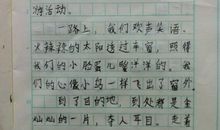 的活动。
一路上，我们欢声笑语。
火辣辣的太阳透过车窗，照得
我们的小脸蛋儿暖洋洋的，我
们的心像小鸟一样飞出了窗外
到了目的地，到处都是金
灿灿的一片，夺人耳目。走着